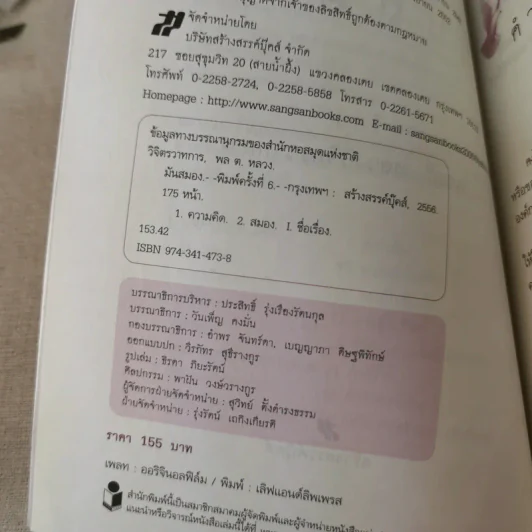 จัดจำหน่ายโดย
บริษัทสร้างสรรค์บุ๊คส์ จำกัด
217 ซอยสุขุมวิท 20 (สายน้ำผึ้ง) แขวงคลองเตย เขตคลองเตย กรุงเทพฯ
โทรศัพท์ 0-2258-2724, 0-2258-5858 โทรสาร 0-2261-5671
Homepage : http://www.sangsanbooks.com E-mail :
ข้อมูลทางบรรณานุกรมของสำนักหอสมุดแห่งชาติ
วิจิตรวาทการ, พล ต. หลวง.
มันสมอง.- -พิมพ์ครั้งที่ 6.- -กรุงเทพฯ : สร้างสรรค์บุ๊คส์, 2556.
175 หน้า.
1. ความคิด. 2. สมอง. I. ชื่อเรื่อง.
153.42
ISBN 974-341-473-8
บรรณาธิการบริหาร : ประสิทธิ์ รุ่งเรืองรัตนกุล
บรรณาธิการ : วันเพ็ญ คงมั่น
กองบรรณาธิการ : อำพร จันทร์ดา, เบญญาภา ดิษฐพิทักษ์
ออกแบบปก : วีรภัทร สุธีรางกูร
รูปเล่ม : ธิรดา ภิยะรัตน์
ศิลปกรรม : พาฝัน วงษ์วรางกูร
ผู้จัดการฝ่ายจัดจำหน่าย : สุวิทย์ ตั้งดำรงธรรม
ฝ่ายจัดจำหน่าย : รุ่งรัตน์ เถกิงเกียรติ
ราคา 155 บาท
เพลท : ออริจินอลฟิล์ม / พิมพ์ : เลิฟแอนด์ลิพเพรส
สำนักพิมพ์นี้เป็นสมาชิกสมาคมผู้จัดพิมพ์และผู้จำหน่ายหนังสือ
แนะนำหรือวิจารณ์หนังสือเล่มนี้ได้ที่